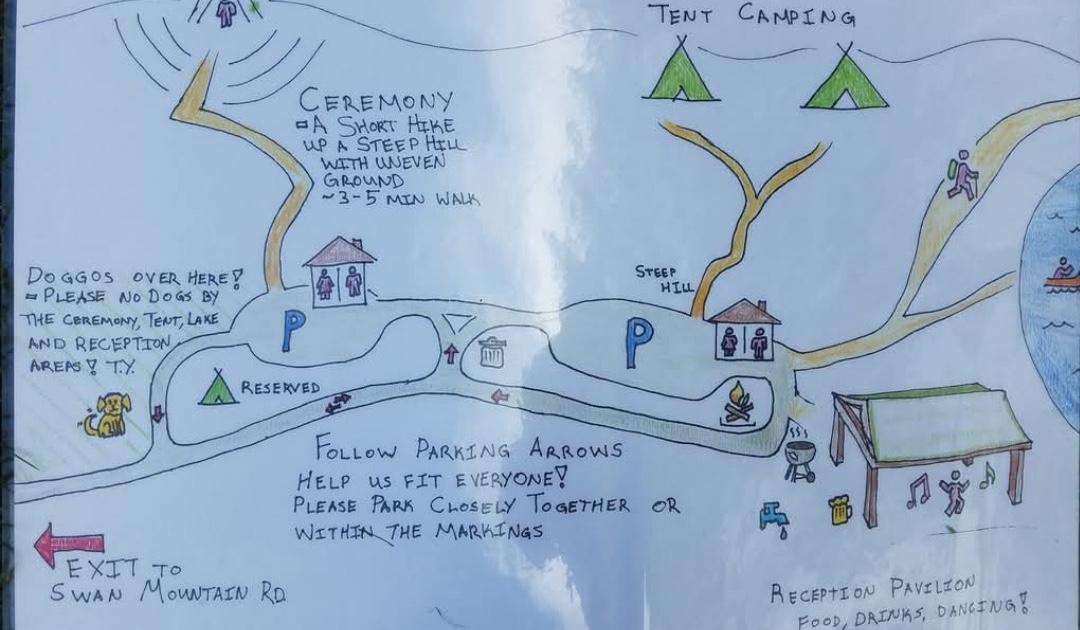 TENT CAMPING
CEREMONY
- A SHORT HIKE
UP A STEEP HILL
WITH UNEVEN
GROUND
~3-5 MIN WALK
DOGGOS OVER HERE!
- PLEASE NO DOGS BY
THE CEREMONY, TENT, LAKE
AND RECEPTION
AREAS! T.Y.
STEEP
HILL
P
P
RESERVED
FOLLOW PARKING ARROWS
HELP US FIT EVERYONE!
PLEASE PARK CLOSELY TOGETHER OR
WITHIN THE MARKINGS
EXIT TO
SWAN MOUNTAIN RD.
RECEPTION PAVILION
FOOD, DRINKS, DANCING!